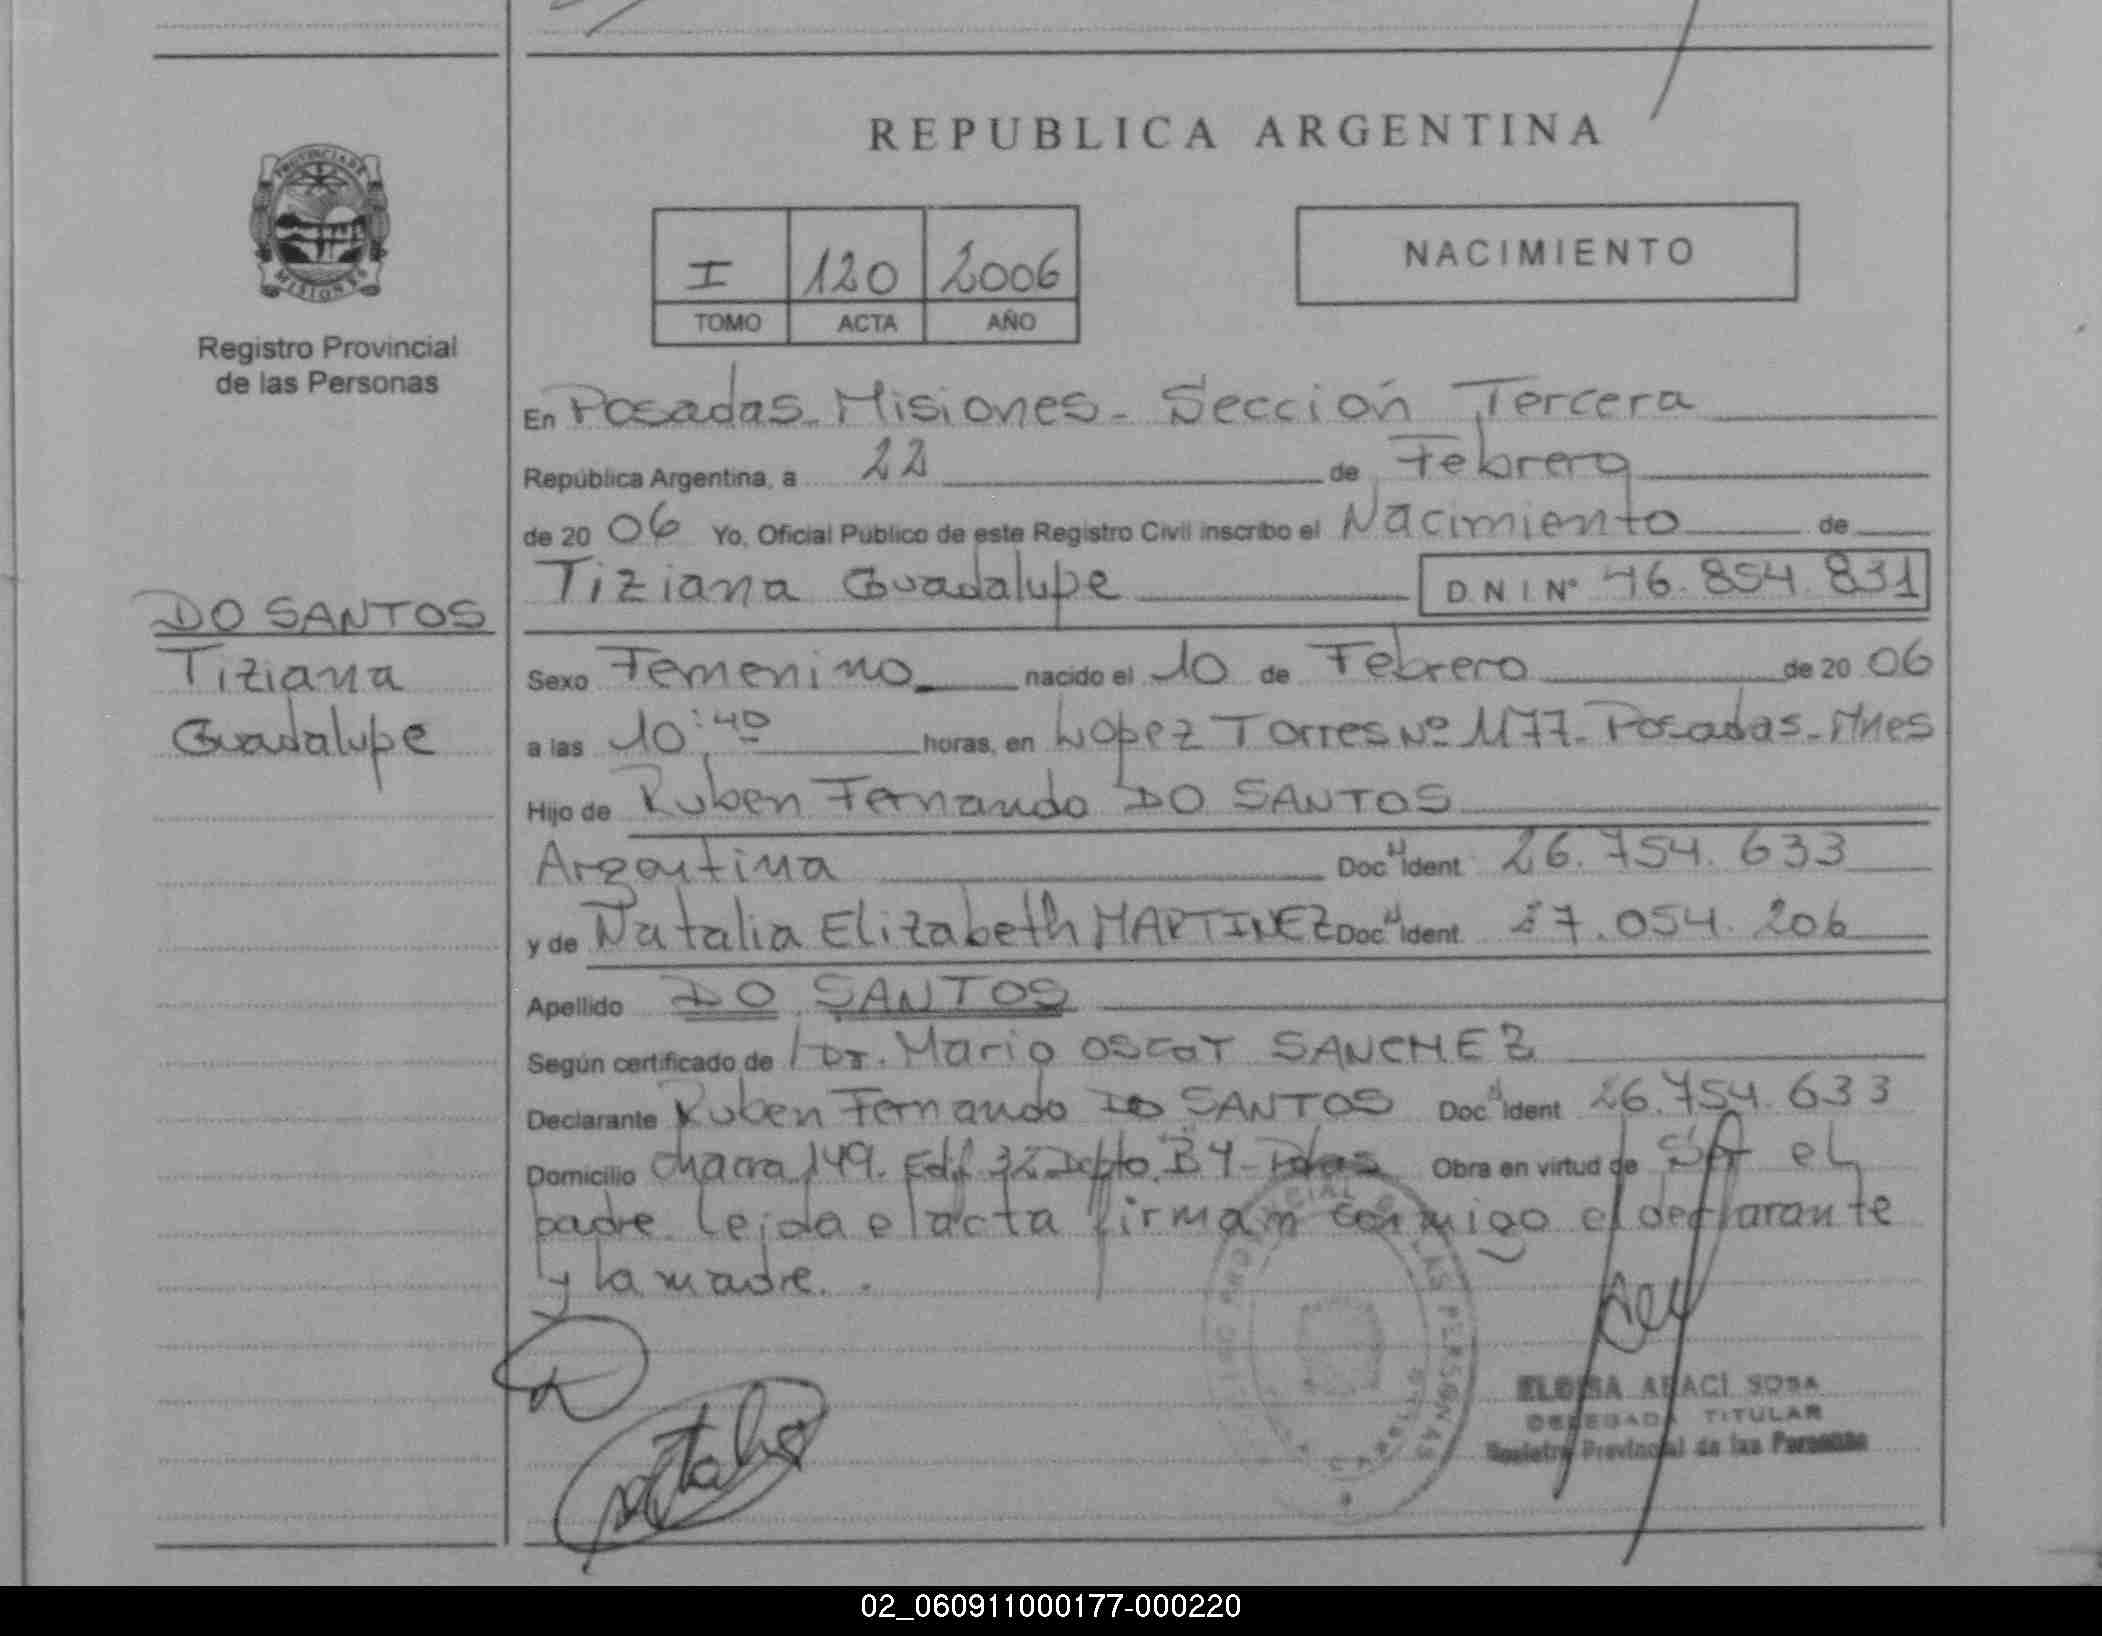 REPUBLICA ARGENTINA
PROVINCIA DE
MISIONES
Registro Provincial
de las Personas
I 120 2006
TOMO ACTA AÑO
NACIMIENTO
En Posadas - Misiones - Sección Tercera
República Argentina, a 22 de Febrero
de 20 06 Yo, Oficial Público de este Registro Civil inscribo el Nacimiento de
Tiziana Guadalupe D N I Nº 46.854.831
DO SANTOS
Tiziana
Guadalupe
Sexo Femenino nacido el 10 de Febrero de 20 06
a las 10:40 horas, en Lopez Torres Nº 1177 - Posadas - Mnes
Hijo de Ruben Fernando DO SANTOS
Argentina Doc. Ident. 26.754.633
y de Natalia Elizabeth MARTINEZ Doc. Ident. 27.054.206
Apellido DO SANTOS
Según certificado de Dr. Mario Oscar SANCHEZ
Declarante Ruben Fernando DO SANTOS Doc. Ident. 26.754.633
Domicilio Chacra 149. Edf. 32 Depto. B4 - Pdas Obra en virtud de el
padre. Leida el acta firman conmigo el declarante
y la madre.
LAS PERSONAS
ELOISA ARACÍ SOSA
DELEGADA TITULAR
Registro Provincial de las Personas
02_060911000177-000220